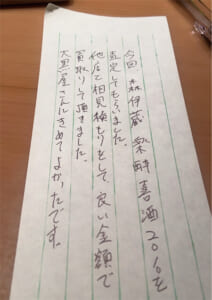 今回 森伊蔵 楽酔喜酒2016を
査定してもらいました。
他店で相見積もりをして良い金額で
買取りして頂きました。
大黒屋さんにきめてよかったです。